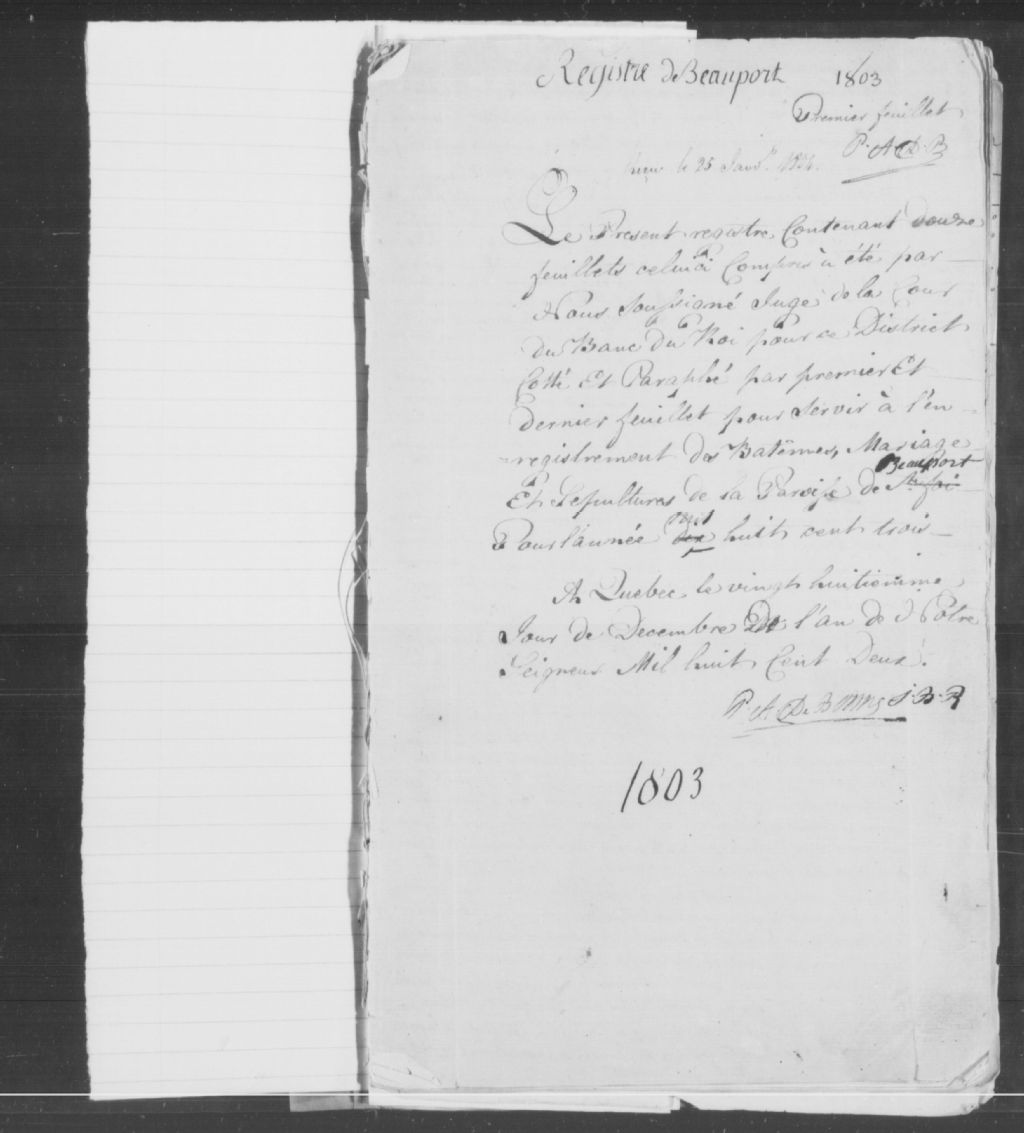 Registre de Beauport 1803
Premier feuillet
P. A. D. B
Reçu le 25 Janv.r 1804.
Le Present registre Contenant douze
feuillets celuici Compris à été par
Nous Soussigné Juge de la Cour
du Banc du Roi pour ce District
Cotté Et Paraphé par premier Et
dernier feuillet pour servir à l'en-
-registrement des Batêmes, Mariage
Beauport
Et Sepultures de la Paroisse de Ste foi
mil
Pour l'année dix huit cent trois
A Quebec le vingt huitiemme
Jour de Decembre De l'an de Notre
Seigneur Mil huit Cent Deux.
P. A. De Bonne J. B. R
1803